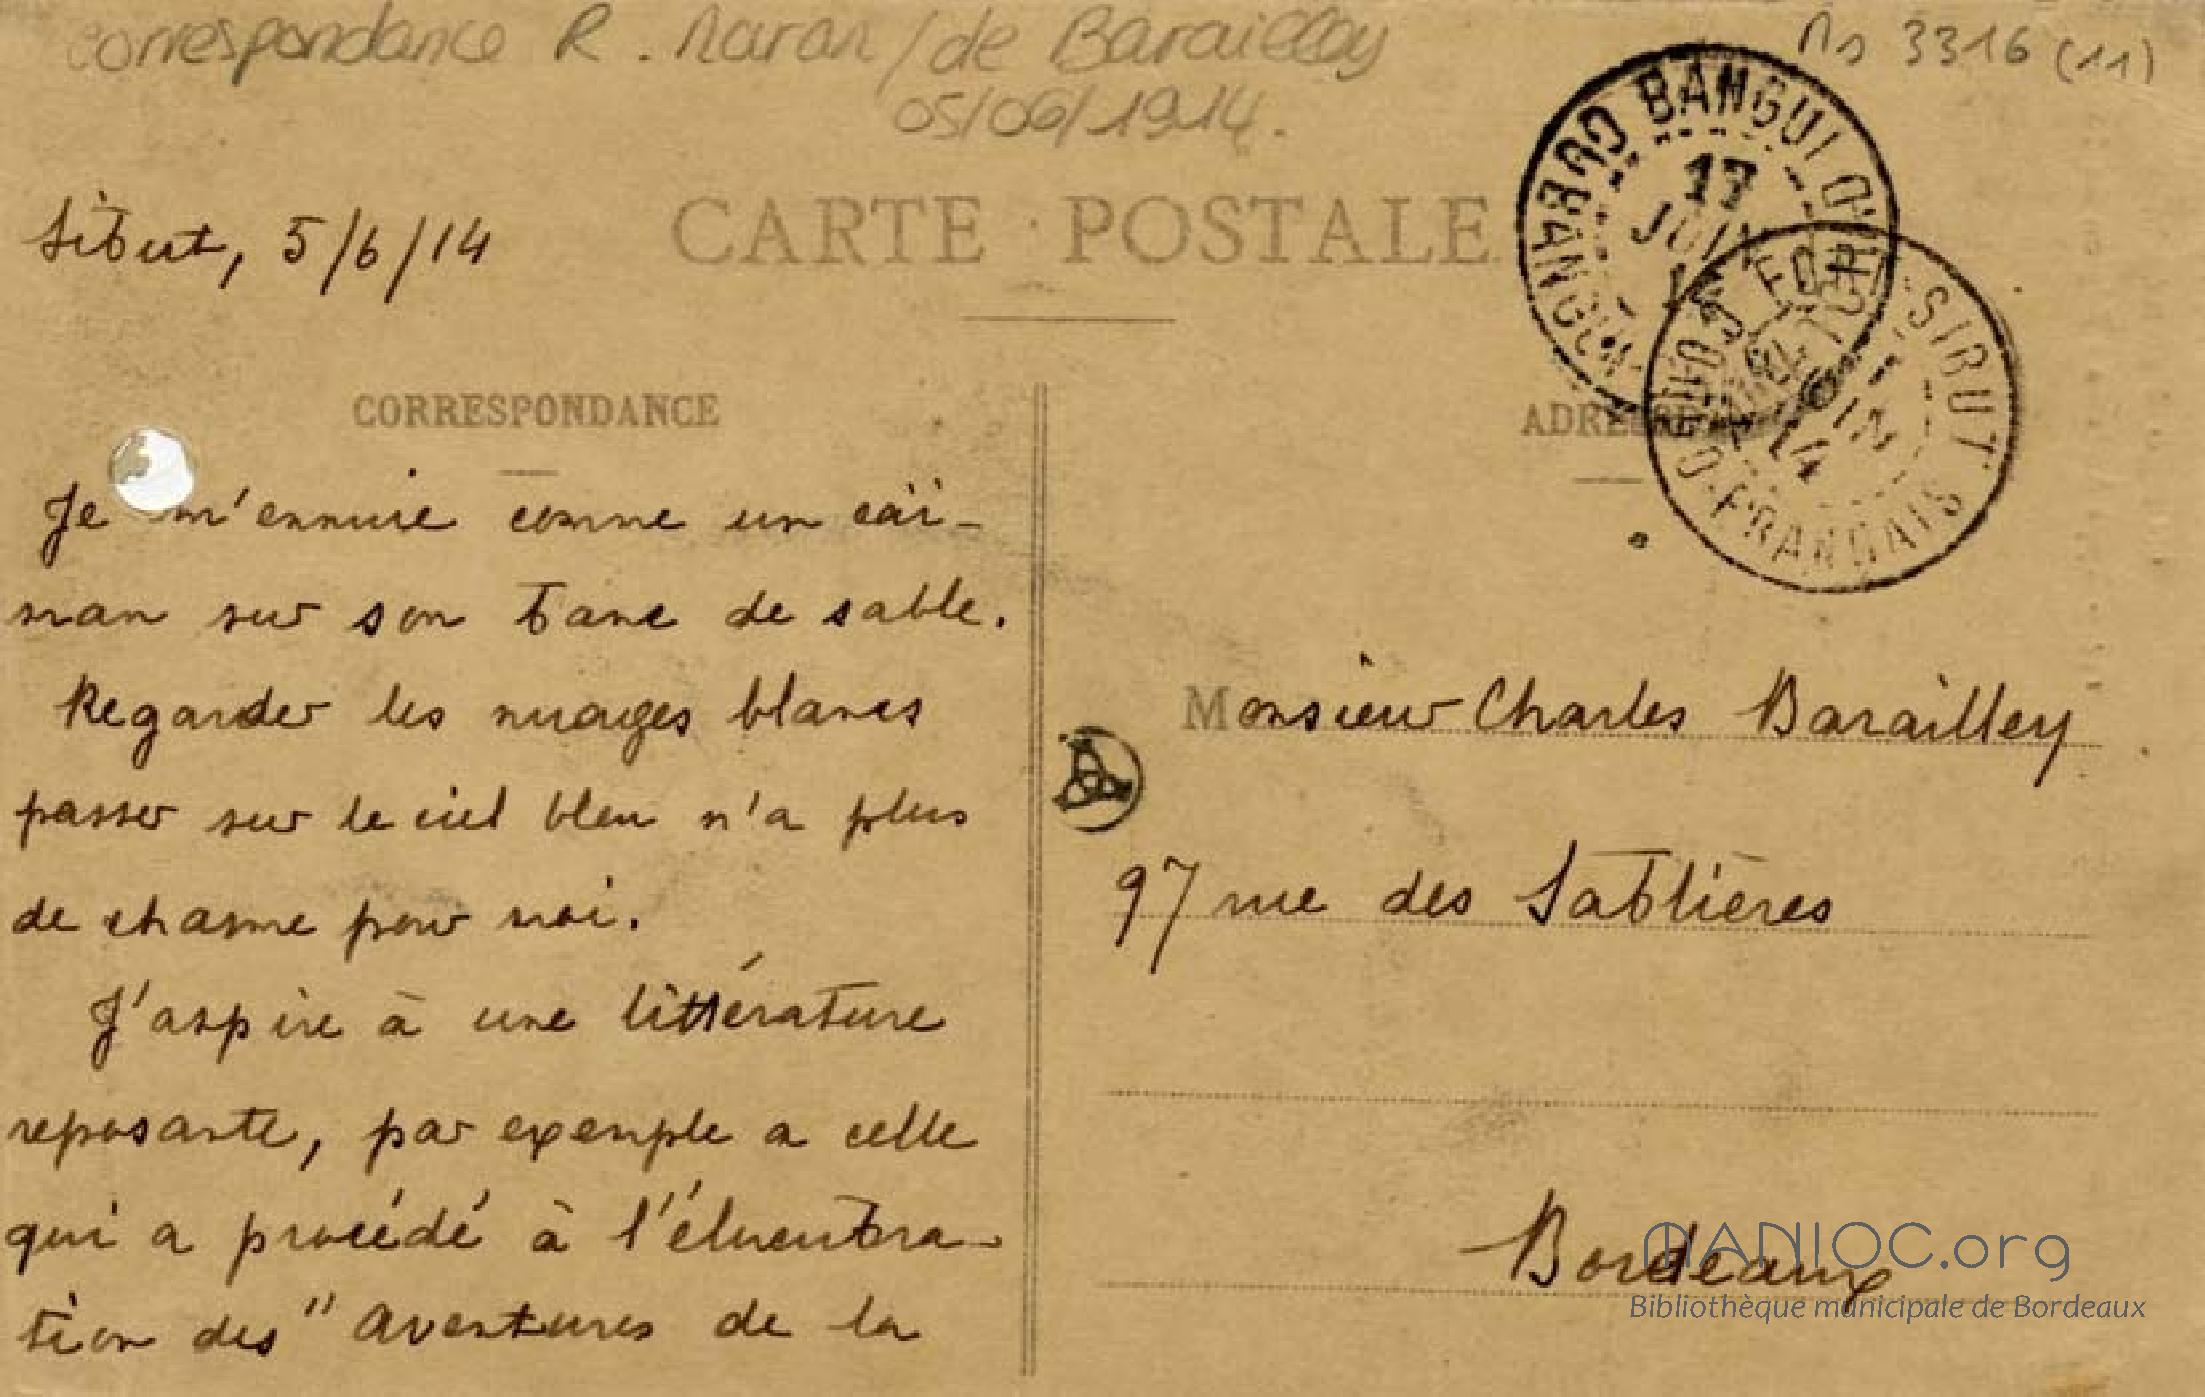 correspondance R. Maran/de Barailley
05/06/1914.
Ms 3316 (11)
Sibut, 5/6/14
CARTE POSTALE
BANGUI
OUBANGUI
17
JUIN
FORT SIBUT
CONGO FRANCAIS
14
CORRESPONDANCE
Je m'ennuie comme un caï-
man sur son banc de sable.
Regarder les nuages blancs
passer sur le ciel bleu n'a plus
de charme pour moi.
J'aspire à une littérature
reposante, par exemple a celle
qui a procédé à l'élucubra-
tion des "Aventures de la
ADRESSE
Monsieur Charles Barailley
97 rue des Sablières
Bordeaux
MANIOC.org
Bibliothèque municipale de Bordeaux